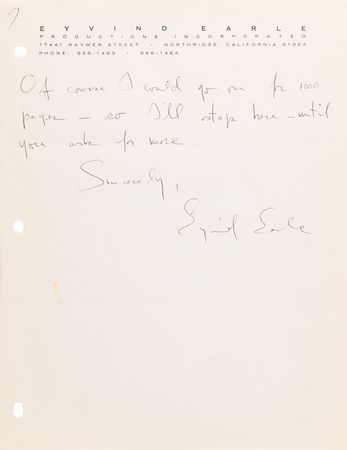 7
EYVIND EARLE
PRODUCTIONS INCORPORATED
17441 RAYMER STREET · NORTHRIDGE, CALIFORNIA 91324
PHONE: 886-1483 · 886-1484
Of course I could go on for 1000
pages – so I'll stop here – until
you ask for more.
Sincerely,
Eyvind Earle